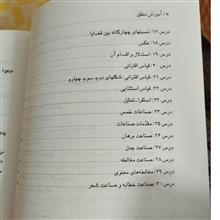 ۸ / آموزش منطق
درس ۱۷: نسبتهای چهارگانه بین قضایا
درس ۱۸: عکس
درس ۱۹: استدلال و اقسام آن
درس ۲۰: قیاس اقترانی
درس ۲۱: قیاس اقترانی: شکلهای دوم، سوم، چهارم
درس ۲۲: قیاس استثنایی
درس ۲۳: استقراء ـ تمثیل
درس ۲۴: صناعات خمس
درس ۲۵: مقدّمات صناعات
درس ۲۶: صناعت برهان
درس ۲۷: صناعت جدل
درس ۲۸: صناعت مغالطه
درس ۲۹: مغالطه‌های معنوی
درس ۳۰: صناعت خطابه و صناعت شعر